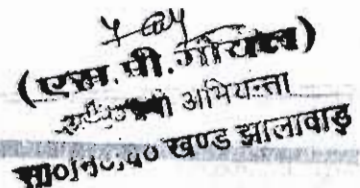 (एस.पी.गोयल)
अभियन्ता
सा०नि०वि० खण्ड झालावाड़